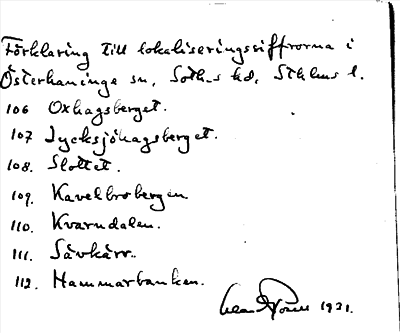 Förklaring till lokaliseringssiffrorna i
Österhaninge sn, Soth-s hd, Sthlms l.
106 Oxhagsberget.
107 Lycksjöhagsberget.
108. Slottet.
109. Kavelbrobergen
110. Kvarndalen.
111. Sävkärr.
112. Hammarbanken.
1921.